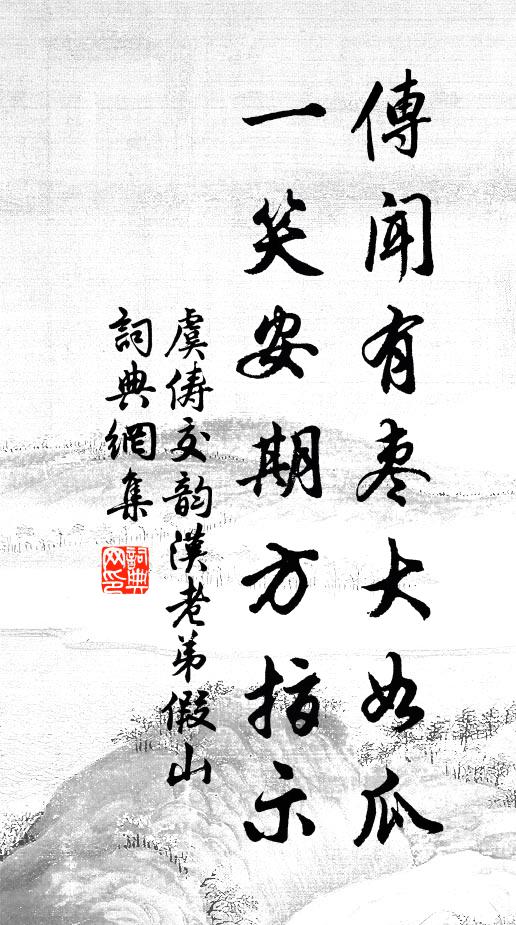 傳聞有枣大如瓜
一笑安期方指示
虞儔交韵漢老弟假山
詞典網集
詞典网印